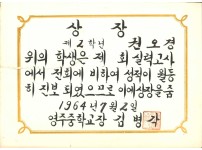 상장
제2학년 권오경
위의 학생은 제 회 실력고사
에서 전회에 비하여 성적이 월등
히 진보 되였으므로 이에상장을줌
1964년 7월 2일
영주중학교장 김병각